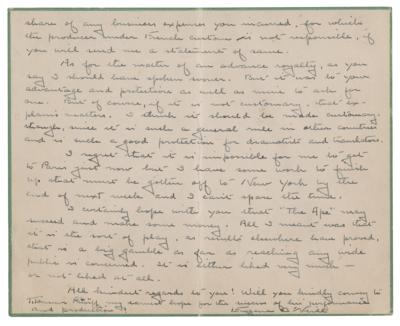 share of any business expenses you incurred, for which
the producer under French custom is not responsible, if
you will send me a statement of same.
As for the matter of an advance royalty, as you
say I should have spoken sooner. But it was to your
advantage and protection as well as mine to ask for
one. But of course, if it is not customary, that ex-
plains matters. I think it should be made customary,
though, since it is such a general rule in other countries
and is such a good protection for dramatists and translators.
I regret that it is impossible for me to get
to Paris just now but I have some work to finish
up that must be gotten off to New York by the
end of next week and I can't spare the time.
I certainly hope with you that "The Ape" may
succeed and make some money. All I meant was that
it is the sort of play, as results elsewhere have proved,
that is a big gamble as far as reaching any wide
public is concerned. It is either liked very much —
or not liked at all.
All kindest regards to you! Will you kindly convey to
my earnest hope for the success of his performance
and production?
Eugene O'Neill